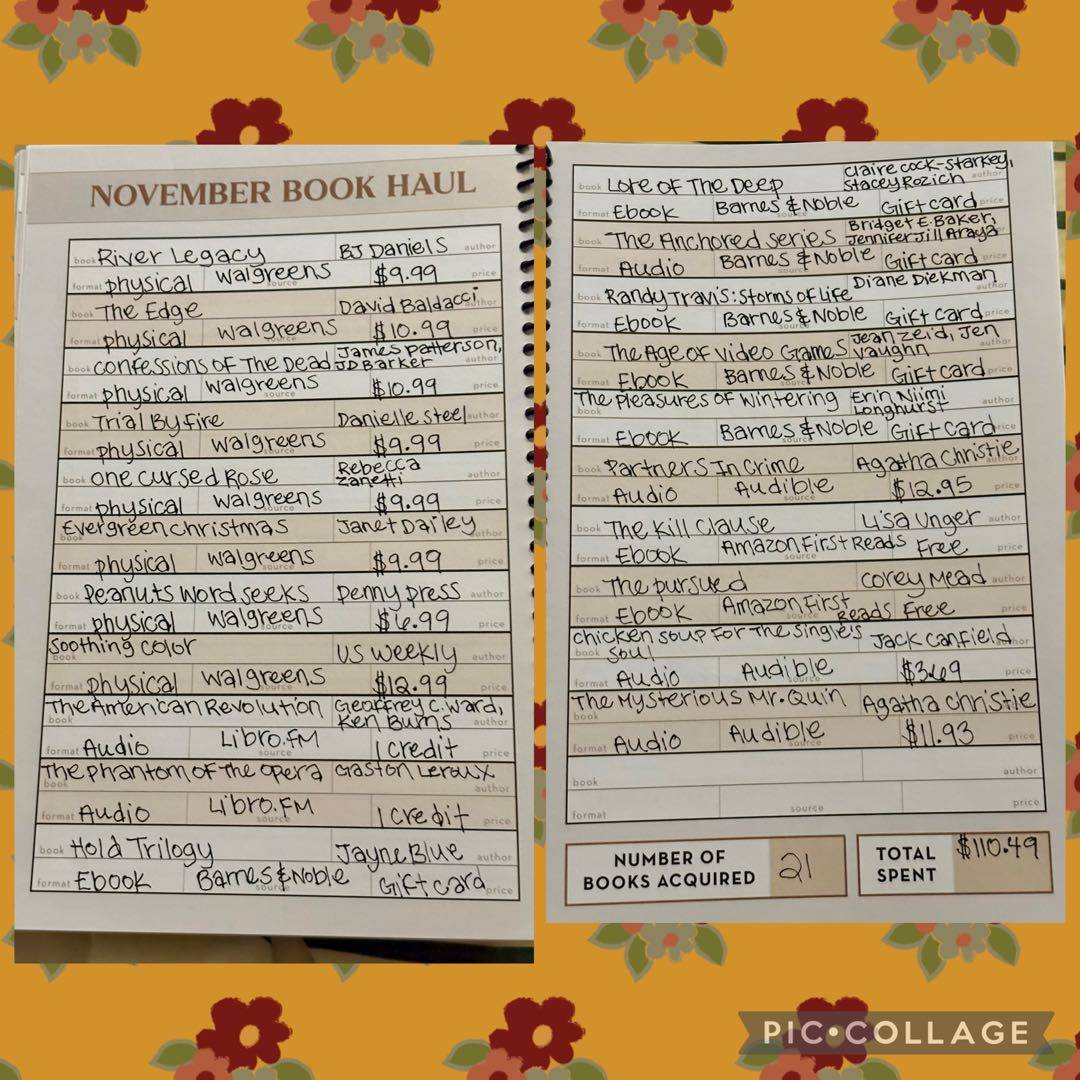 NOVEMBER BOOK HAUL
book River Legacy BJ Daniels author
format physical walgreens source $9.99 price
book The Edge David Baldacci author
format physical walgreens source $10.99 price
book Confessions of The Dead James Patterson, JD Barker author
format physical walgreens source $10.99 price
book Trial By Fire Danielle Steel author
format physical walgreens source $9.99 price
book One Cursed Rose Rebecca Zanetti author
format physical walgreens source $9.99 price
book Evergreen Christmas Janet Dailey author
format physical walgreens source $9.99 price
book Peanuts Word Seeks Penny Press author
format physical walgreens source $6.99 price
book Soothing Color US Weekly author
format physical walgreens source $12.99 price
book The American Revolution Geoffrey C. Ward, Ken Burns author
format Audio Libro.FM source 1 credit price
book The Phantom of The Opera Gaston Leroux author
format Audio Libro.FM source 1 credit price
book Hold Trilogy Jayne Blue author
format Ebook Barnes & Noble source Gift card price
book Lore of The Deep Claire Cock-Starkey, Stacey Rozich author
format Ebook Barnes & Noble source Gift card price
book The Anchored Series Bridget E. Baker, Jennifer Jill Araya author
format Audio Barnes & Noble source Gift card price
book Randy Travis: Storms of Life Diane Diekman author
format Ebook Barnes & Noble source Gift card price
book The Age of Video Games Jean Zeid, Jen Vaughn author
format Ebook Barnes & Noble source Gift card price
book The Pleasures of Wintering Erin Niimi Longhurst author
format Ebook Barnes & Noble source Gift card price
book Partners In Crime Agatha Christie author
format Audio Audible source $12.95 price
book The Kill Clause Lisa Unger author
format Ebook Amazon First Reads source Free price
book The Pursued Corey Mead author
format Ebook Amazon First Reads source Free price
book Chicken Soup For The Single's Soul Jack Canfield author
format Audio Audible source $3.69 price
book The Mysterious Mr. Quin Agatha Christie author
format Audio Audible source $11.93 price
book author
format source price
NUMBER OF BOOKS ACQUIRED 21
TOTAL SPENT $110.49
PIC•COLLAGE